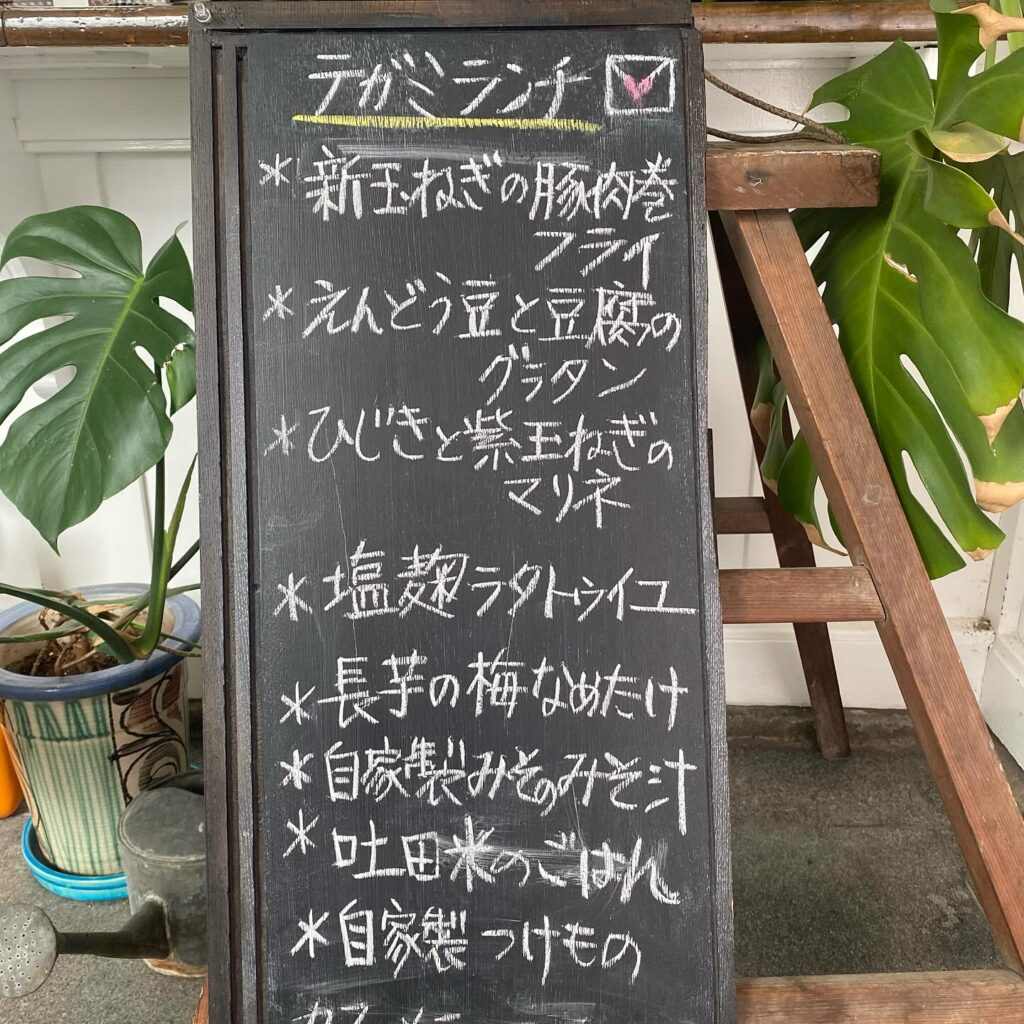 テガミランチ
* 新玉ねぎの豚肉巻
フライ
* えんどう豆と豆腐の
グラタン
* ひじきと紫玉ねぎの
マリネ
* 塩麹ラタトゥイユ
* 長芋の梅なめたけ
* 自家製みそのみそ汁
* 吐田米のごはん
* 自家製つけもの